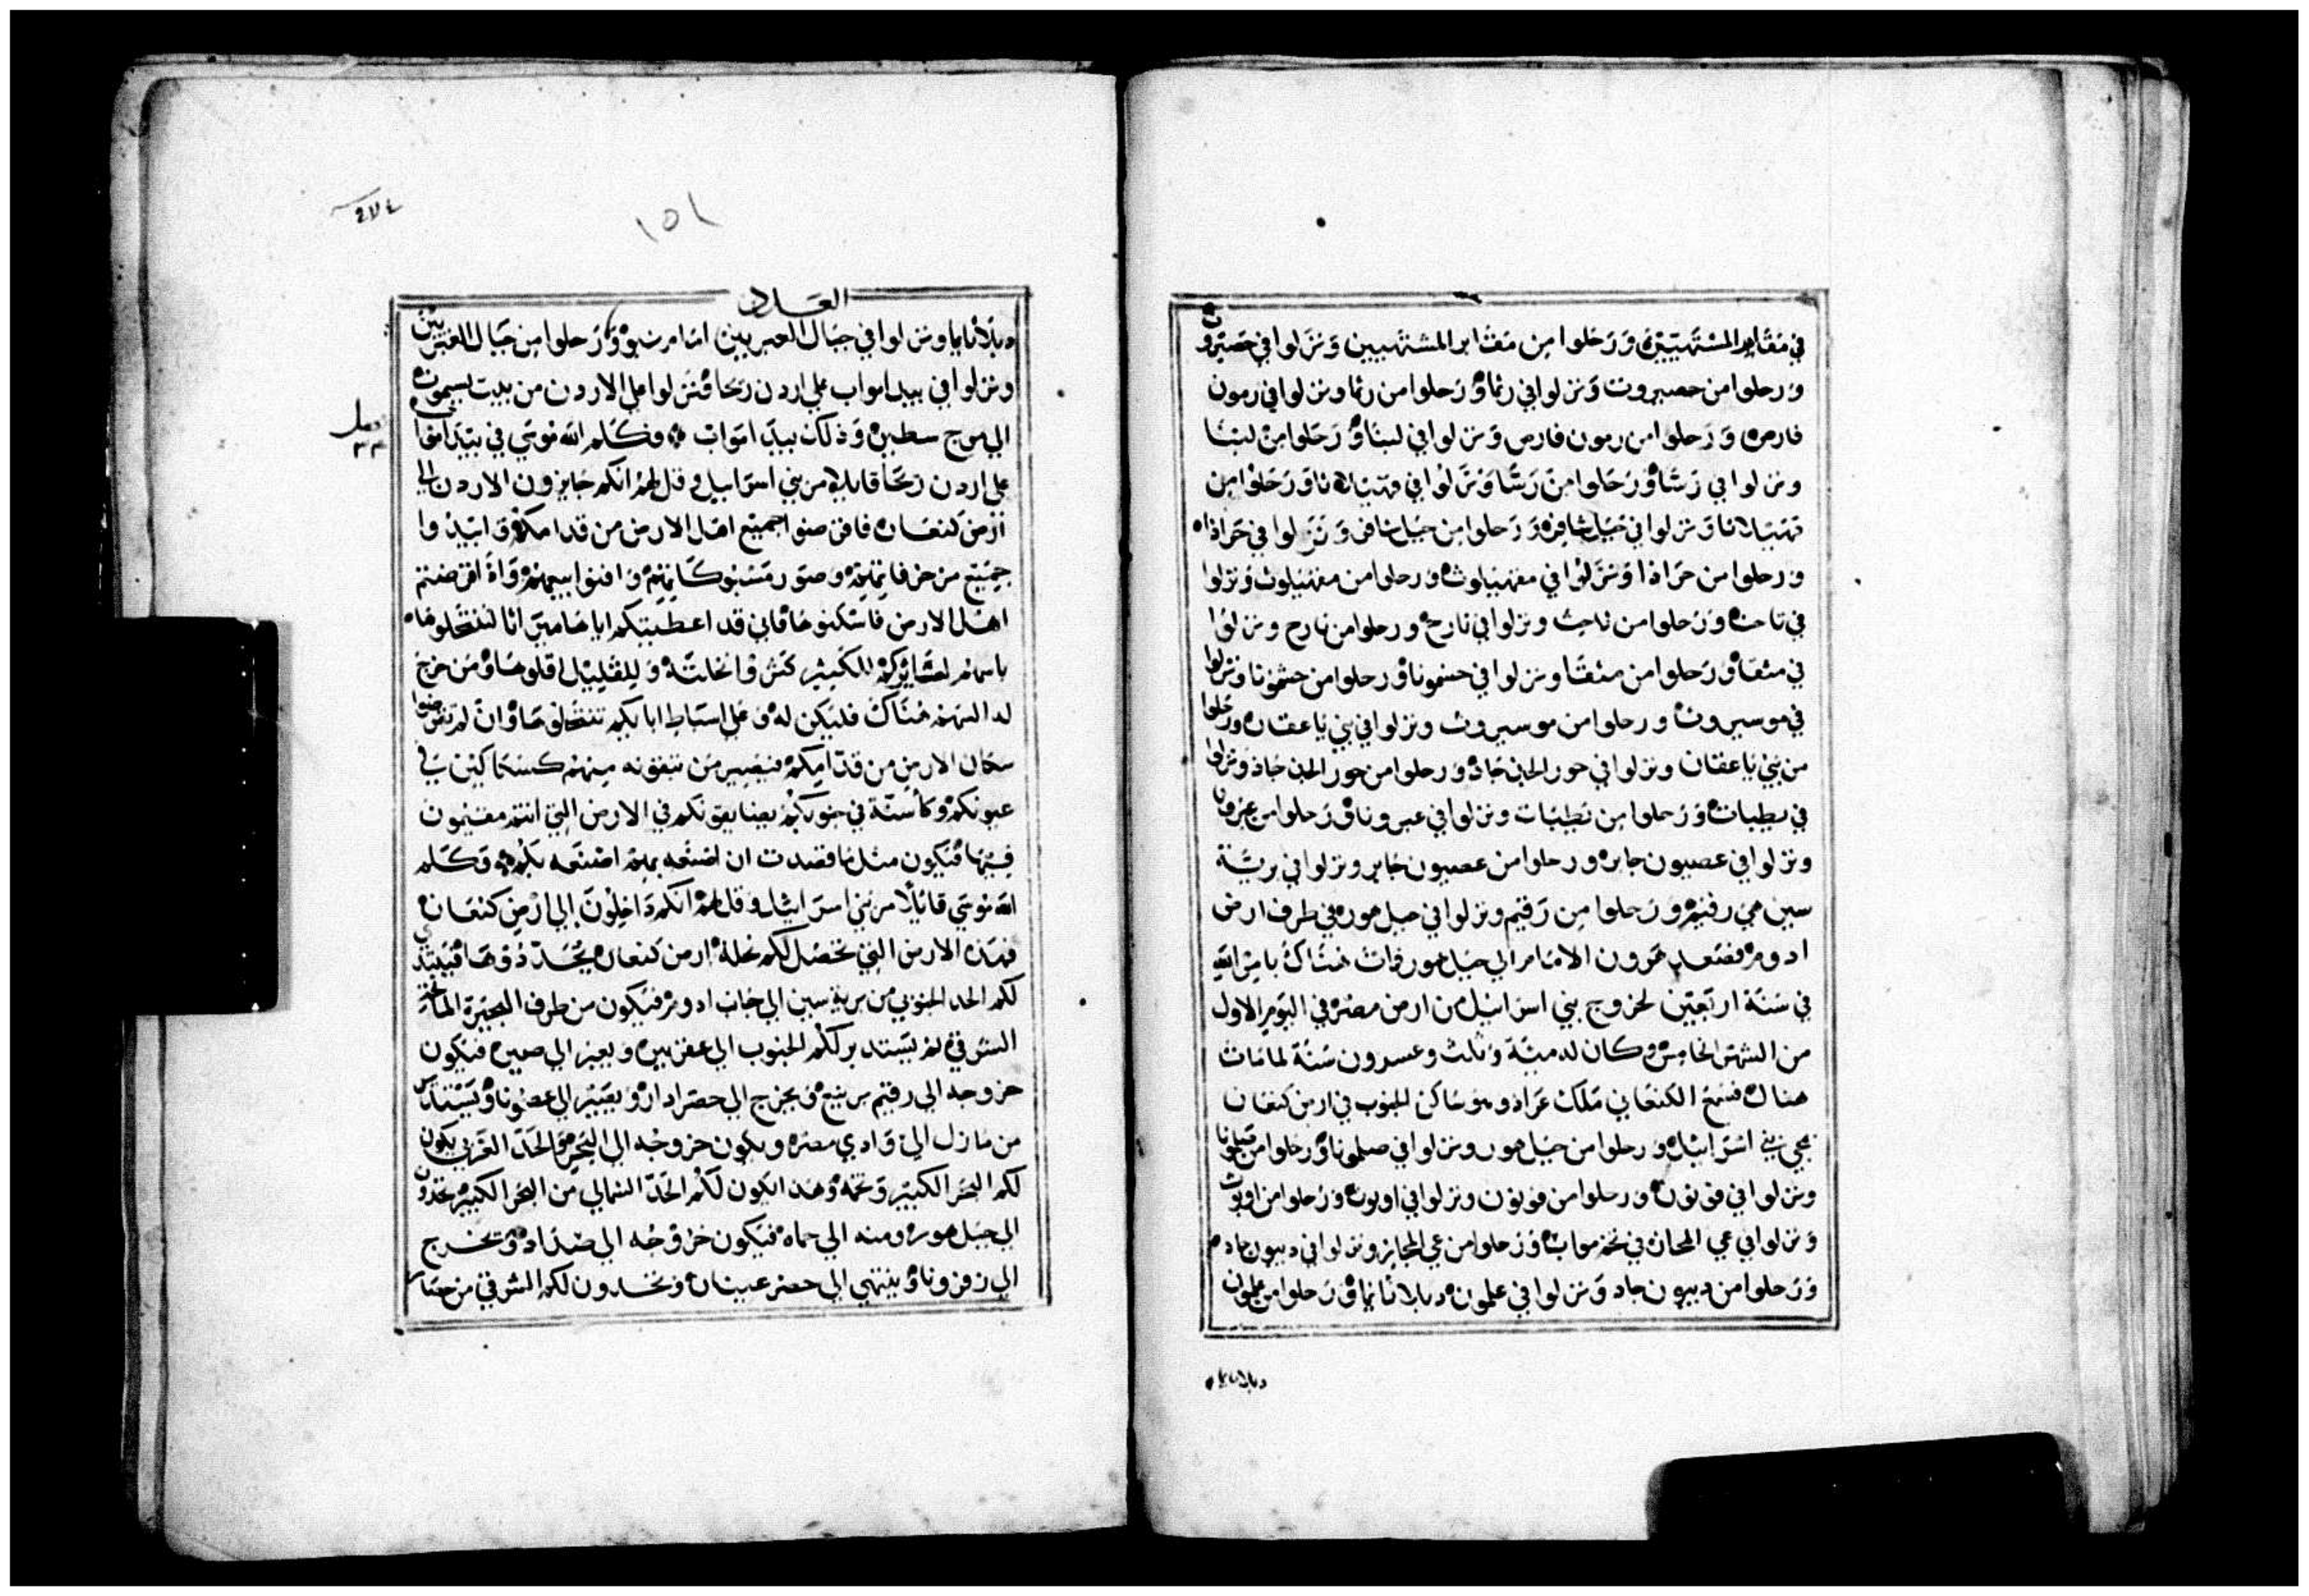 في مقابر المشتهيين ورحلوا من مقابر المشتهيين ونزلوا في حصيروت
ورحلوا من حصيروت ونزلوا في رثما ورحلوا من رثما ونزلوا في رمون
فارص ورحلوا من رمون فارص ونزلوا في لبنا ورحلوا من لبنا
ونزلوا في رسا ورحلوا من رسا ونزلوا في قهيلاثا ورحلوا من
قهيلاثا ونزلوا في جبل شافر ورحلوا من جبل شافر ونزلوا في حراذا
ورحلوا من حراذا ونزلوا في مقهيلوث ورحلوا من مقهيلوث ونزلوا
في تاحث ورحلوا من تاحث ونزلوا في تارح ورحلوا من تارح ونزلوا
في مثقا ورحلوا من مثقا ونزلوا في حشمونا ورحلوا من حشمونا ونزلوا
في موسيروث ورحلوا من موسيروث ونزلوا في بني ياعقان ورحلوا
من بني ياعقان ونزلوا في حور الجدجاد ورحلوا من حور الجدجاد ونزلوا
في يطبات ورحلوا من يطبات ونزلوا في عبرونا ورحلوا من عبرونا
ونزلوا في عصيون جابر ورحلوا من عصيون جابر ونزلوا في برية
سين هي رقيم ورحلوا من رقيم ونزلوا في جبل هور في طرف ارض
ادوم فصعد هرون الامام الي جبل هور فمات هناك بامر الله
في سنة اربعين لخروج بني اسرائيل من ارض مصر في اليوم الاول
من الشهر الخامس وكان له مية وثلث وعسرون سنة لما مات
هناك فسمع الكنعاني ملك عراد وهو ساكن الجنوب في ارض كنعان
بمجي بني اسرائيل ورحلوا من جبل هور ونزلوا في صلمونا ورحلوا من صلمونا
ونزلوا في فونون ورحلوا من فونون ونزلوا في اوبوث ورحلوا من اوبوث
ونزلوا في عي المجاز في تخم مواب ورحلوا من عي المجايز ونزلوا في ديبون جاد
ورحلوا من ديبون جاد ونزلوا في علمون دبلاثايما ورحلوا من علمون
دبلاثايما
٢٧٤
١٥١
العدد
دبلاثايما ونزلوا في جبال العبريين امام نبو ورحلوا من جبال العبريين
ونزلوا في بيدا مواب علي اردن رحا فنزلوا علي الاردن من بيت يسيموث
الي مرج سطين وذلك بيدا مواب وكلم الله موسي في بيدا مواب
علي اردن رحا قايلا مر بني اسراييل وقل لهم انكم جايزون الاردن الي
ارض كنعان فاقرضوا جميع اهل الارض من قدامكم وابيدوا
جميع وافنوا واذا اقرضتم
اهل الارض فاسكنوها فاني قد اعطيتكم اياها ميراثا لتنتحلوها
باسهم لعشايركم للكثير كثروا نحلته وللقليل اقلوها ومن خرج
له السهم هناك فليكن له وعلي اسباط ابايكم تنتحلوها وان لم تقرضوا
سكان الارض من قدامكم فيصير من تبقونه منهم كسكاكين في
عيونكم وكاسنة في جنوبكم يضايقونكم في الارض التي انتم مقيمون
فيها فيكون مثل ما قصدت ان اصنعه بهم اصنعه بكم وكلم
الله موسي قايلا مر بني اسرائيل وقل لهم انكم داخلون الي ارض كنعان
فهذه الارض التي تحصل لكم نحلة ارض كنعان بحدودها فيبتدي
لكم الحد الجنوبي من برية سين الي جانب ادوم فيكون من طرف البحيرة المالحة
الشرقي ثم يستدير لكم الجنوب الي عقربين ويعبر الي صين فيكون
خروجه الي رقيم برنيع ويخرج الي حصر ادار ويعبر الي عصمونا ويستدير
من الي وادي مصر ويكون خروجه الي البحر والحد الغربي يكون
لكم البحر الكبير وتخمه وهذا يكون لكم الحد الشمالي من البحر الكبير تحدون
الي جبل هور ومنه الي حماه فيكون خروجه الي صداد وتخرج
الي زفرونا وينتهي الي حصر عينان وتحدون لكم الشرقي من حصار
فصل
٣٤